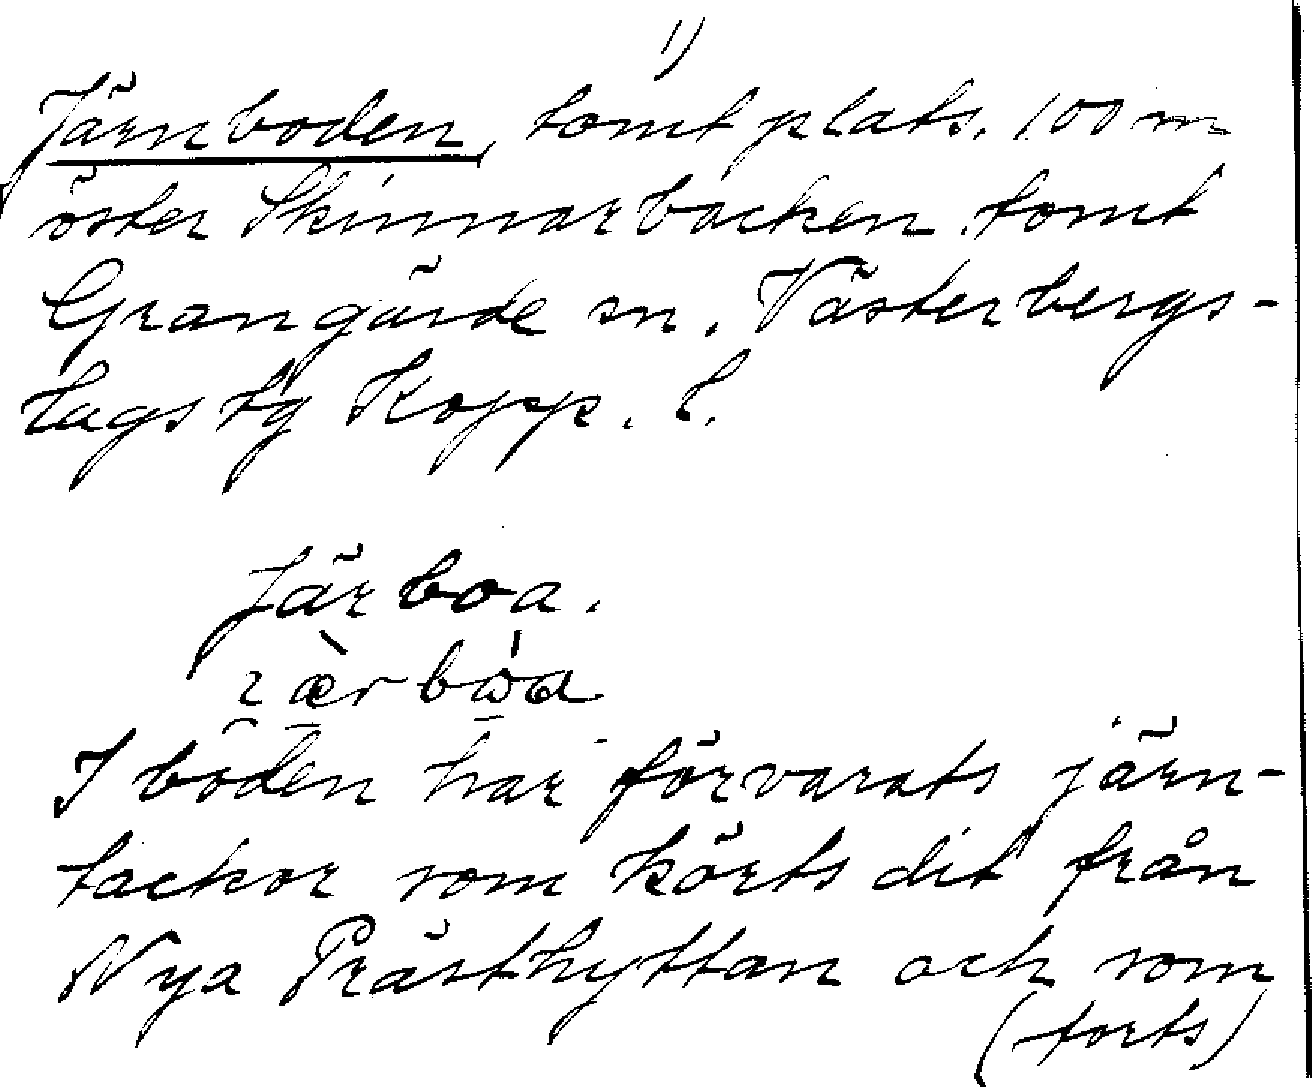 1)
Järnboden, tomtplats. 100 m
öster Skinnarbacken. tomt
Grangärde sn. Västerbergs-
lags tg Kopp. l.
Järboa.
I boden har förvarats järn-
tackor som körts dit från
Nya Prästhyttan och som
(forts)